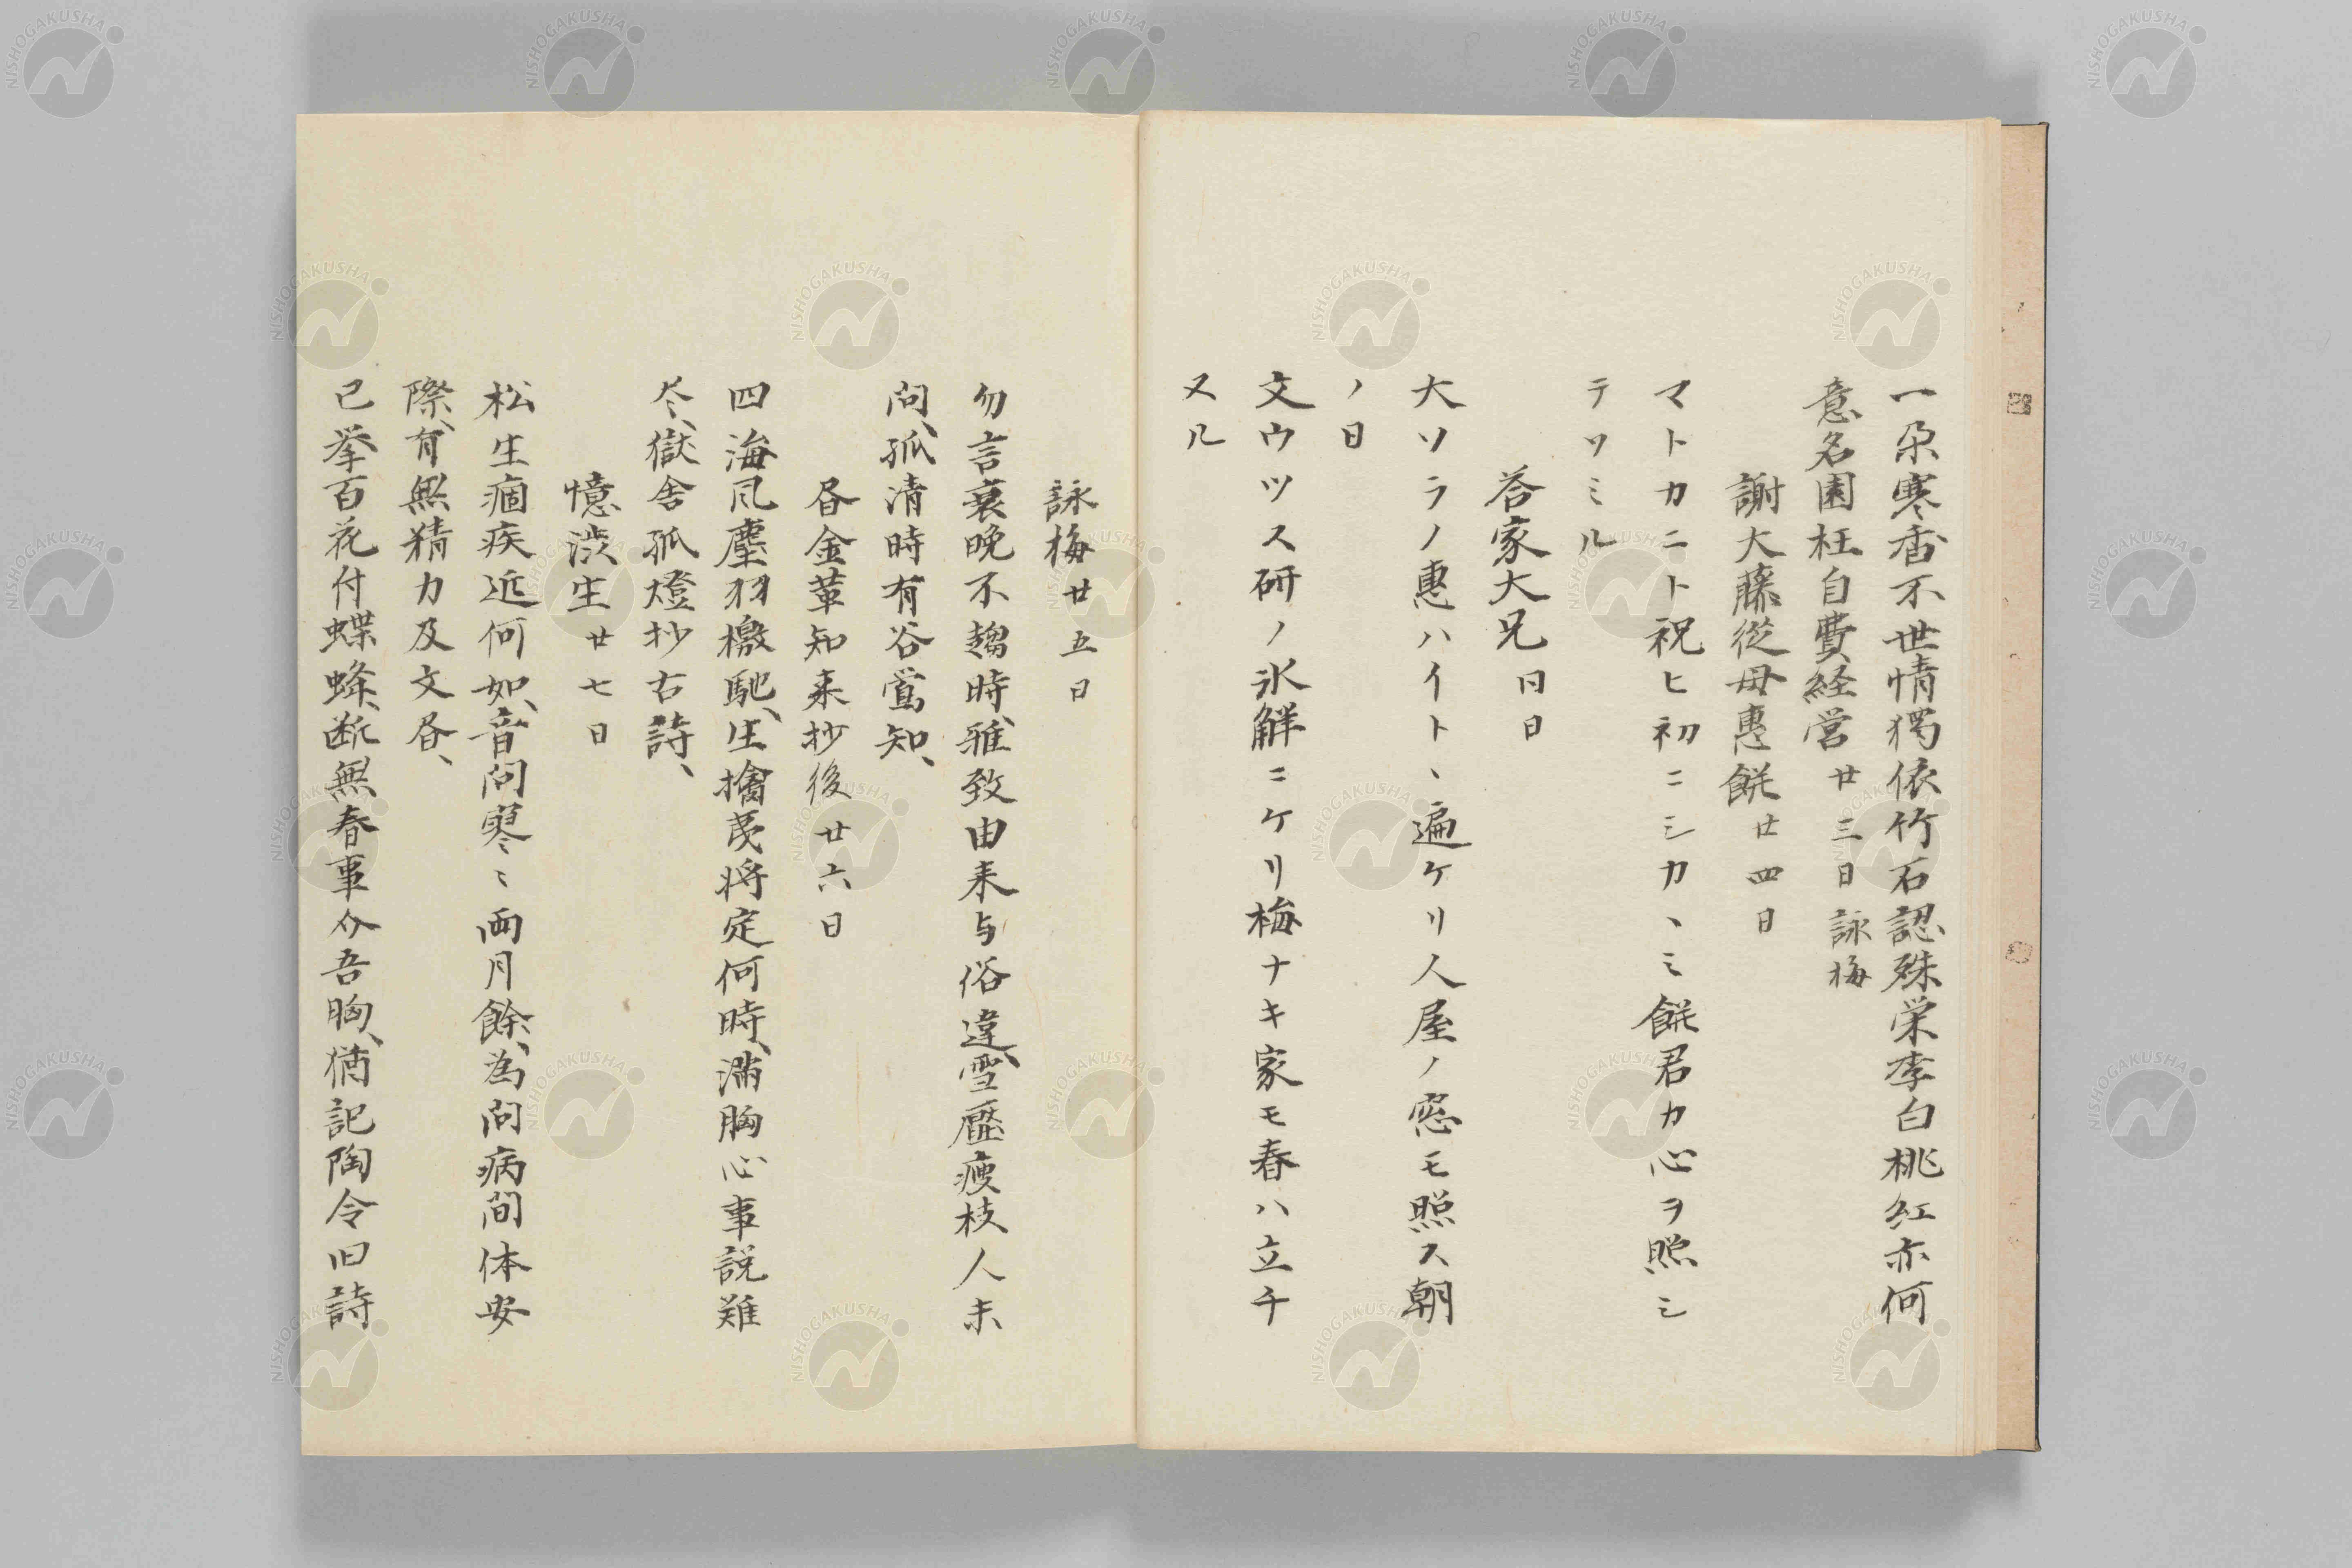 一朶寒香不世情獨依竹石認殊栄李白桃紅亦何
意名園枉自費経営 廿三日 詠梅
謝大藤従母惠餅 廿四日
マトカニト祝ヒ初ニシカヽミ餅君カ心ヲ照シ
テソミル
荅家大兄 同日
大ソラノ惠ハイトヽ遍ケリ人屋ノ窓モ照ス朝
ノ日
文ウツス研ノ氷解ニケリ梅ナキ家モ春ハ立チ
ヌル
詠梅 廿五日
勿言衰晩不趨時、雅致由来与俗違、雪壓痩枝人未
問、孤清時有谷鴬知、
昏金菫知来抄後 廿六日
四海凨塵羽檄馳、生擒蔑将定何時、満胸心事説難
尽、獄舎孤燈抄古詩、
憶渋生 廿七日
松生痼疾近何如、音問寥〻両月餘、為問病間体安
際、有無精力及文昏、
已挙百花付蝶蜂、断無春事介吾胸、猶記陶令旧詩
NISHOGAKUSHA